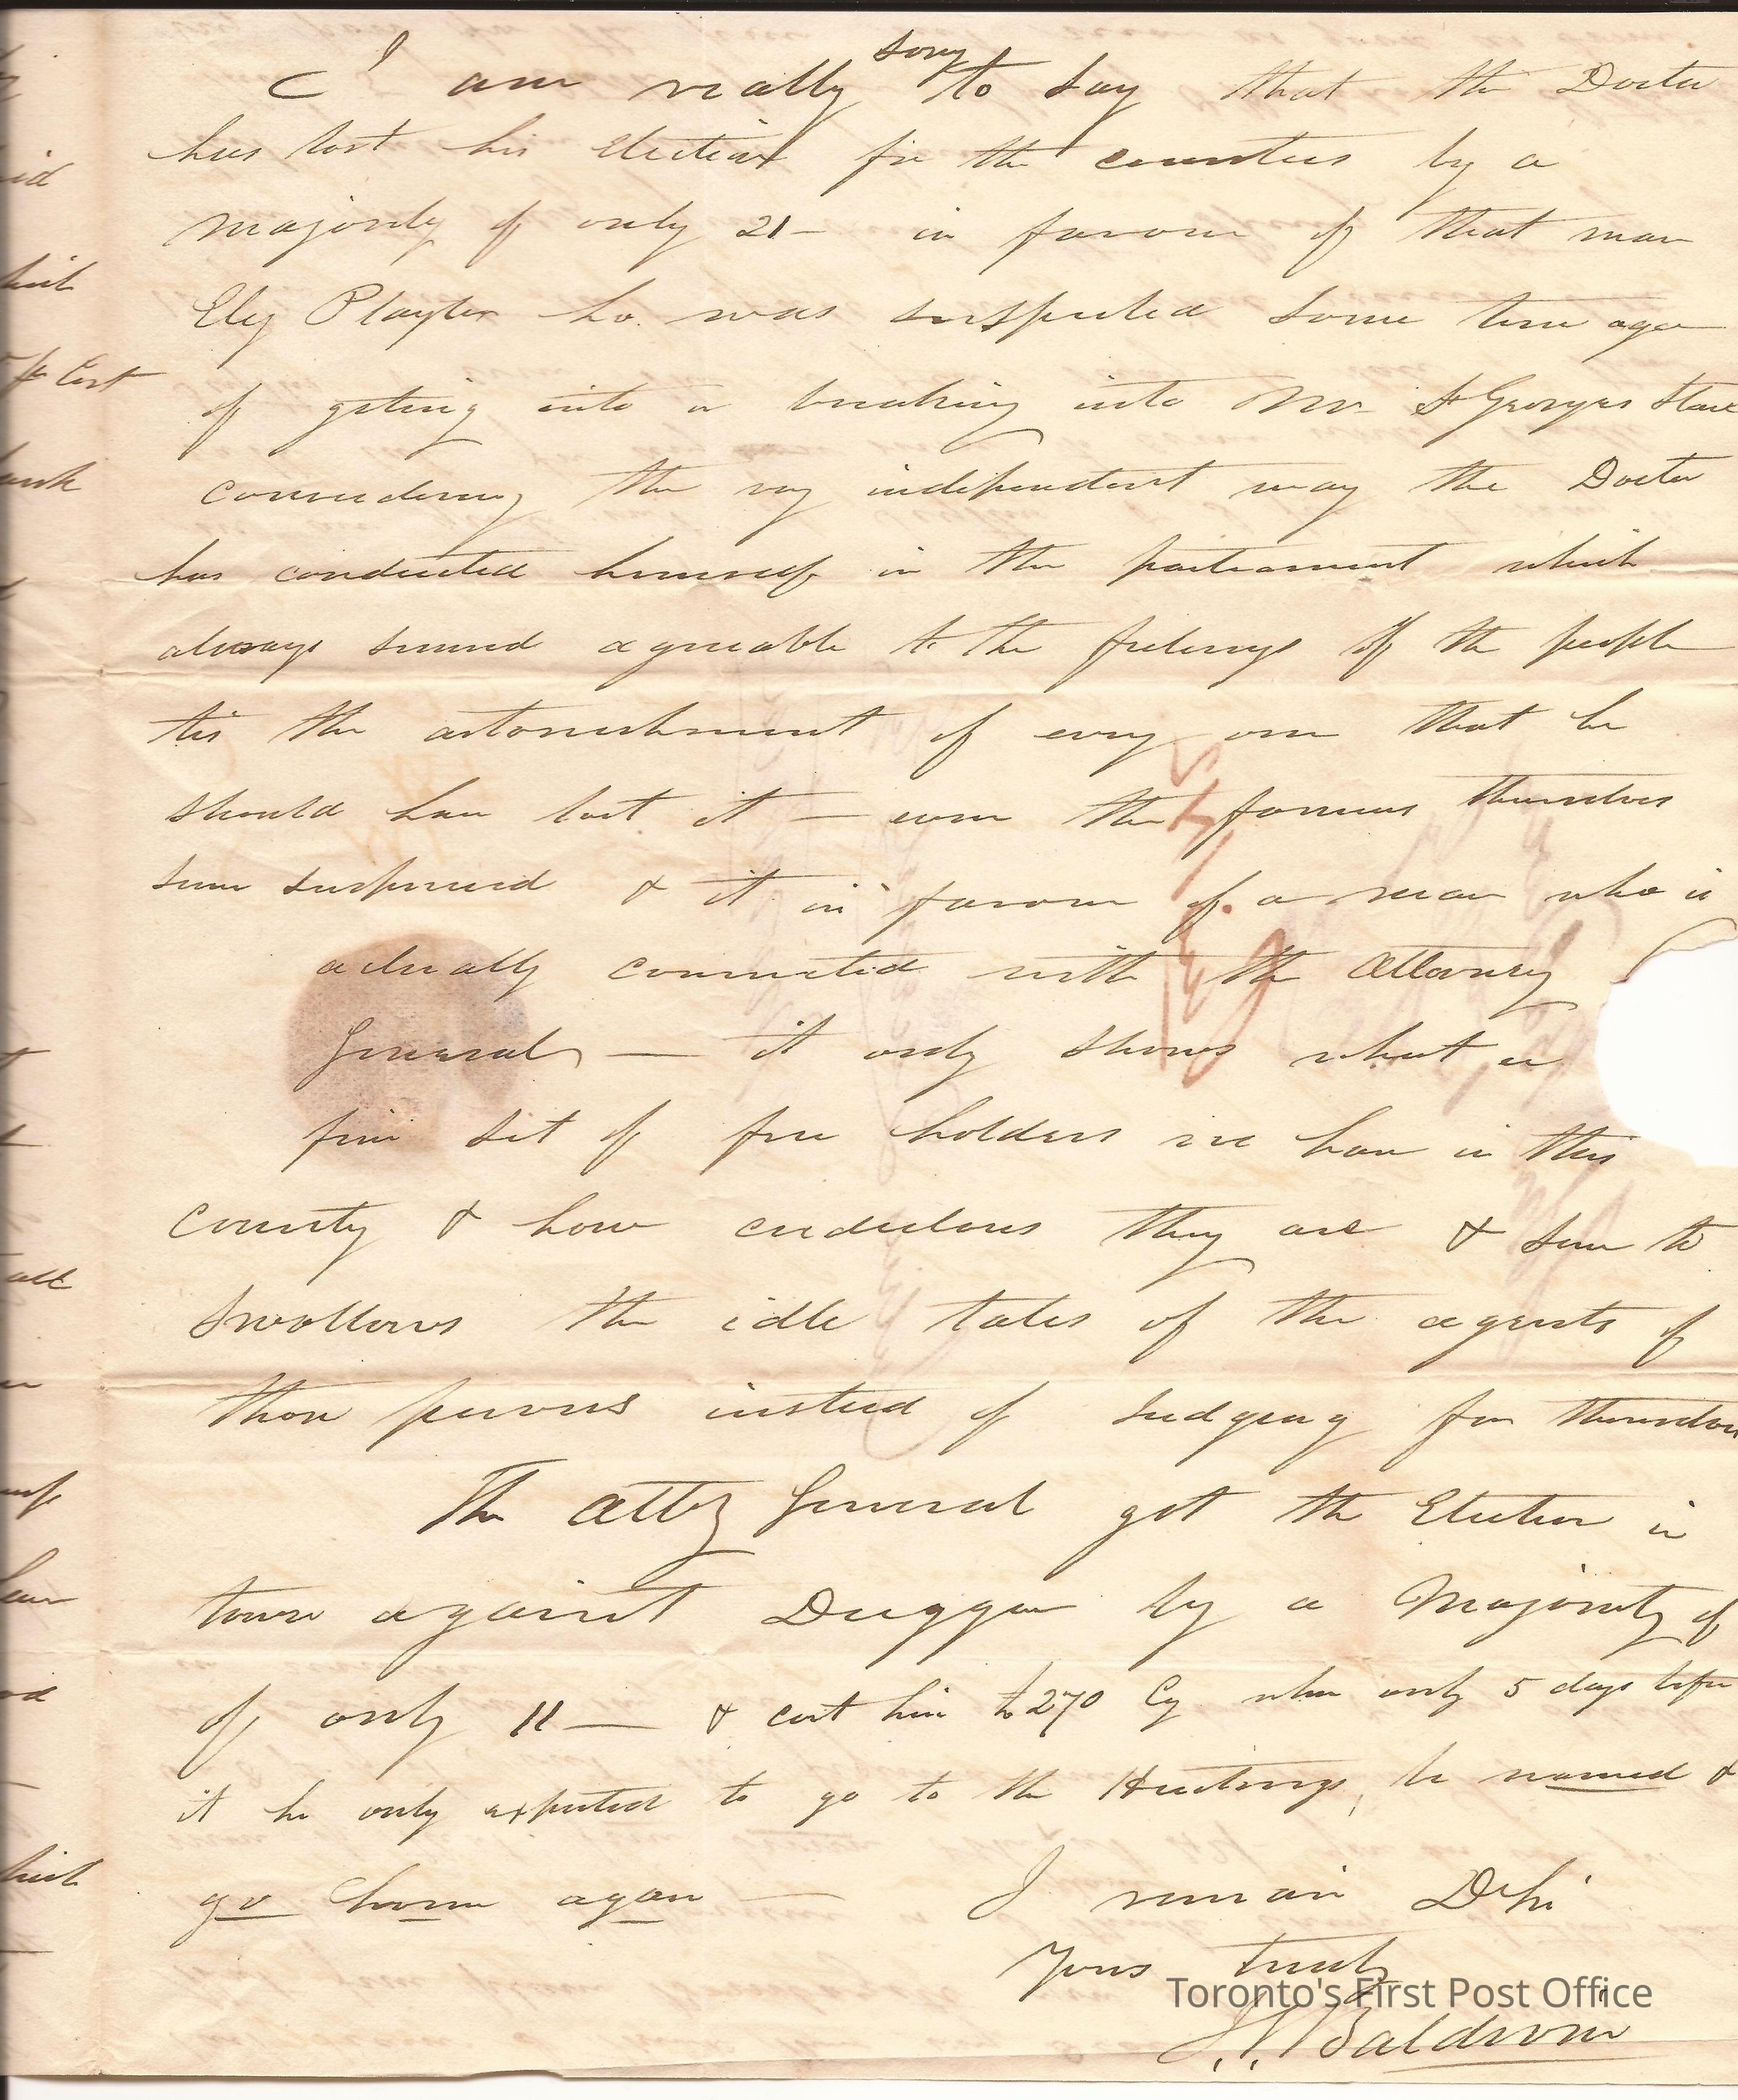 I am really sorry to say that the Doctor
has lost his Election for the counties by a
majority of only 21 — in favour of that man
Ely Playter ho. was suspected some time ago
of geting into a breaking into Mr St Georges Store
considering the very independent way the Doctor
has conducted himself in the parliament which
always seemed agreeable to the feelings of the people
tis the astonishment of every one that he
should have lost it — even the farmers themselves
seem surprised & it in favour of a man who is
actually connected with the Attorney
General — it only shows what a
fine set of free holders we have in this
County & how credulous they are & seem to
swallows the idle tales of the agents of
those persons instead of Judging for themselves
The Atty General got the Election in
town against Duggan by a Majority of
of only 11 — & cost him £270 Cy when only 5 days before
it he only expected to go to the Hustings, be named &
go home again — I remain Dr Sir
Yours truly
Toronto's First Post Office
Baldwin
id
East
all